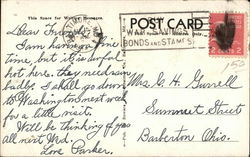 This Space for Writing Messages
POST CARD
BONDS AND STAMPS
Dear Friends:
I am having a fine
time, but it is awful
hot here. they need rain
badly. I shall go down
to Washington next week
for a little visit.
Will be thinking of you
all next Wed.
Love Parker.
Mrs. C. H. Gurrell
Summit Street
Barberton Ohio.
150